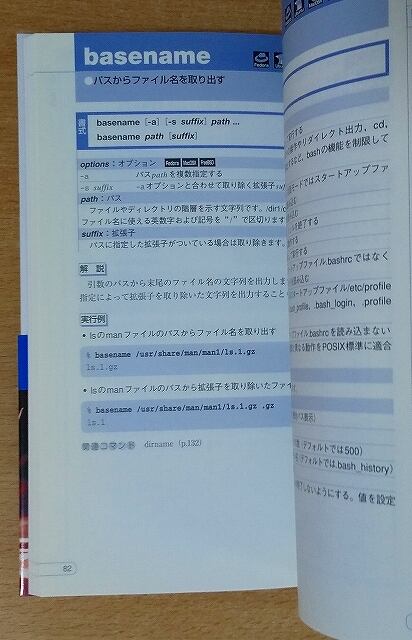 basename
Fedora
●パスからファイル名を取り出す
書式
basename [-a] [-s suffix] path ...
basename path [suffix]
options：オプション Fedora MacOSX FreeBSD
-a パスpathを複数指定する
-s suffix -aオプションと合わせて取り除く拡張子
path：パス
ファイルやディレクトリの階層を示す文字列です。
ファイル名に使える英数字および記号を"/"で区切ります
suffix：拡張子
パスに指定した拡張子がついている場合は取り除きます。
解 説
引数のパスから末尾のファイル名の文字列を出力しま
指定によって拡張子を取り除いた文字列を出力すること
実行例
• lsのmanファイルのパスからファイル名を取り出す
% basename /usr/share/man/man1/ls.1.gz
ls.1.gz
• lsのmanファイルのパスから拡張子を取り除いたファイ
% basename /usr/share/man/man1/ls.1.gz .gz
ls.1
関連コマンド dirname（p.132）
82
行する
やリダイレクト出力、cd、
など、bashの機能を制限して
ードではスタートアップファ
込む
む
を終了する
行する
する
アップファイル.bashrcではなく
み込む
スタートアップファイル/etc/profile
.bash_profile、.bash_login、.profile
ファイル.bashrcを読み込まない
異なる動作をPOSIX標準に適合
パス表示）
数（デフォルトでは500）
名（デフォルトでは.bash_history）
了しないようにする。値を設定